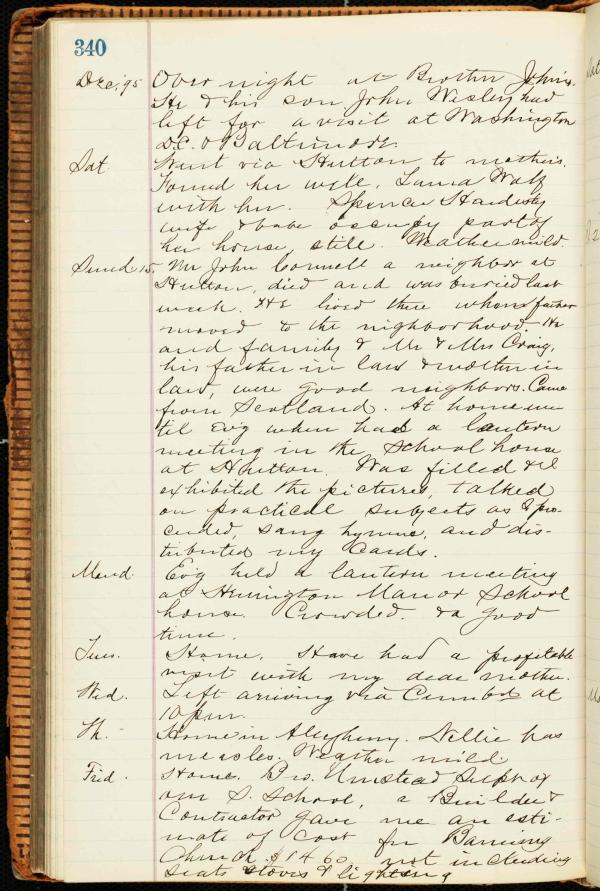 340
Dec. 95 Over night at Brother John's.
He & his son John Wesley had
left for a visit at Washington
D.C. & Baltimore.
Sat. Went via Hutton to mothers.
Found her well. Laura Wolf
with her. Spencer Hardesty
wife & babe occupy part of
her house, still. Weather mild.
Sund 15. Mr John Connell a neighbor at
Hutton, died and was buried last
week. He lived there when father
moved to the nighborhood. He
and family & Mr & Mrs Craig,
his father in law & mother in
law, were good neighbors. Came
from Scotland. At home un-
til Ev'g when had a lantern
meeting in the school house
at Hutton. Was filled & I
exhibited the pictures, talked
on practical subjects as I pro-
ceeded, sang hymns, and dis-
tributed my Cards.
Mond. Ev'g held a lantern meeting
at Herrington Manor School
house. Crowded. & a good
time.
Tues. Home. Have had a profitable
visit with my dear mother.
Wed. Left arriving via Cumb'd at
10 p.m.
Th. Home in Allegheny. Nellie has
measles. Weather mild.
Frid. Home. Bro. Umstead Supt. of
our S. School, a Builder &
Contractor gave me an esti-
mate of Cost for Banning
Church $1460, not including
seats stoves & lighting